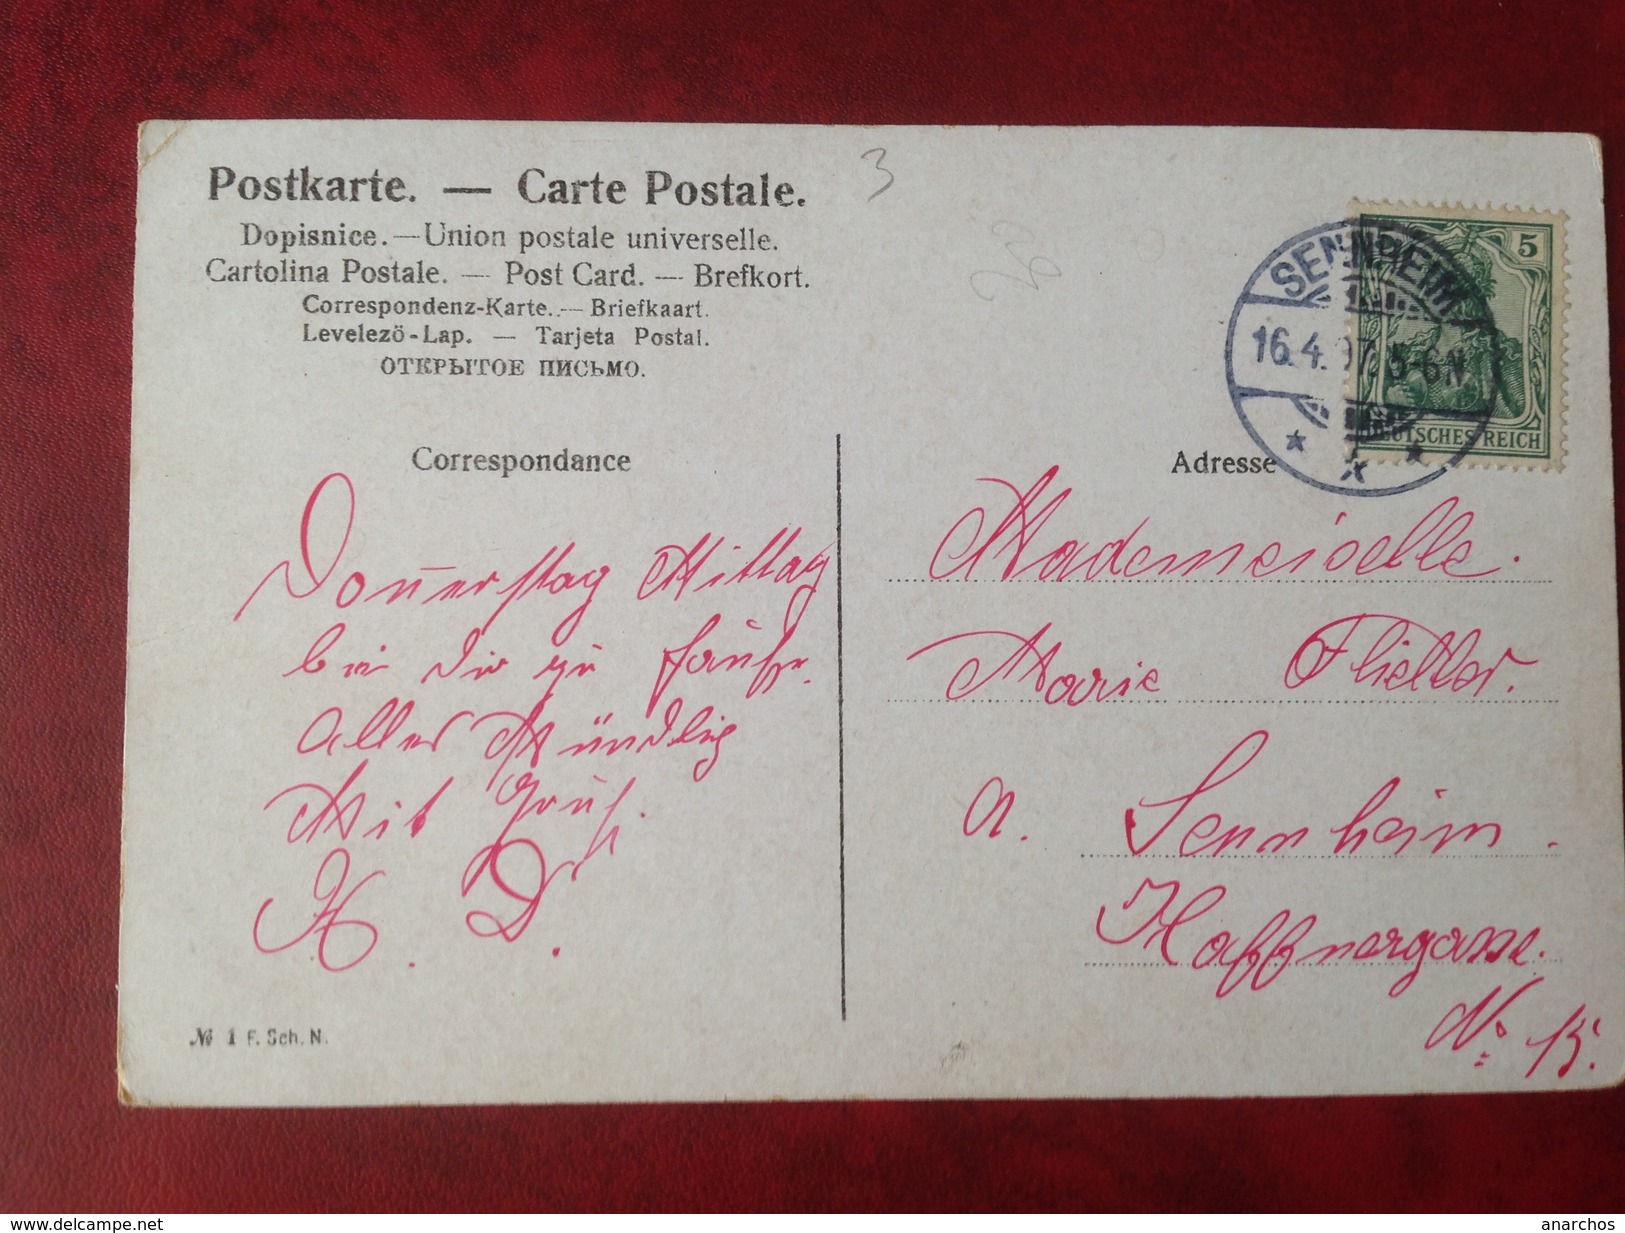 Postkarte. — Carte Postale.
Dopisnice. — Union postale universelle.
Cartolina Postale. — Post Card. — Brefkort.
Correspondenz-Karte. — Briefkaart.
Levelezö-Lap. — Tarjeta Postal.
ОТКРЫТОЕ ПИСЬМО.
3
SENNHEIM
16.4.07. 5-6N
5
DEUTSCHES REICH
Correspondance
Adresse
Donnerstag Mittag
bei Dir zu
Alles Mündlig
Mit Gruß.
H. D.
Mademeiselle.
Marie
a. Sennheim.
Haffnergasse.
No 15.
№ 1 F. Sch. N.
www.delcampe.net
anarchos